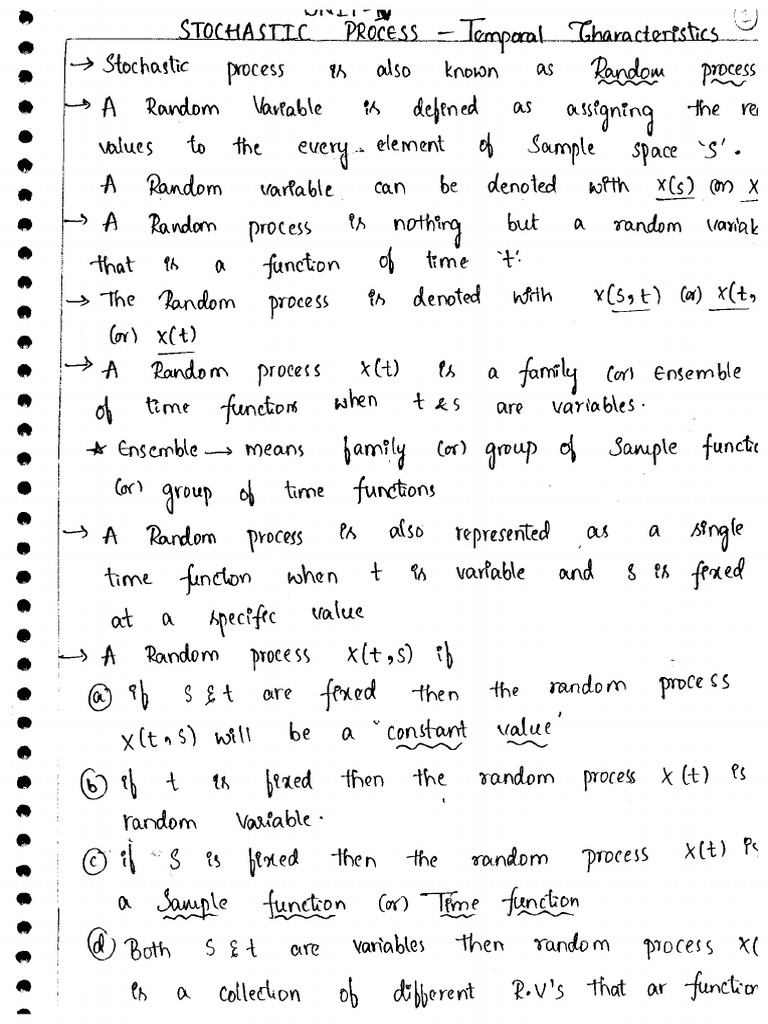 UNIT-IV
STOCHASTIC PROCESS – Temporal Characteristics
→ Stochastic process is also known as Random process
→ A Random Variable is defined as assigning the
values to the every element of Sample space 'S'.
A Random variable can be denoted with X(s) (or)
→ A Random process is nothing but a random
that is a function of time 't'.
→ The Random process is denoted with X(s,t) (or) X(t,
(or) X(t)
→ A Random process X(t) is a family (or) Ensemble
of time functions when t & s are variables.
* Ensemble → means family (or) group of Sample
(or) group of time functions
→ A Random process is also represented as a single
time function when t is variable and s is fixed
at a specific value
→ A Random process X(t,s) if
(a) if s & t are fixed then the random process
X(t,s) will be a "constant value"
(b) if t is fixed then the random process X(t) is
random variable.
(c) if S is fixed then the random process X(t) is
a Sample function (or) Time function
(d) Both S & t are variables then random process
is a collection of different R.V's that ar